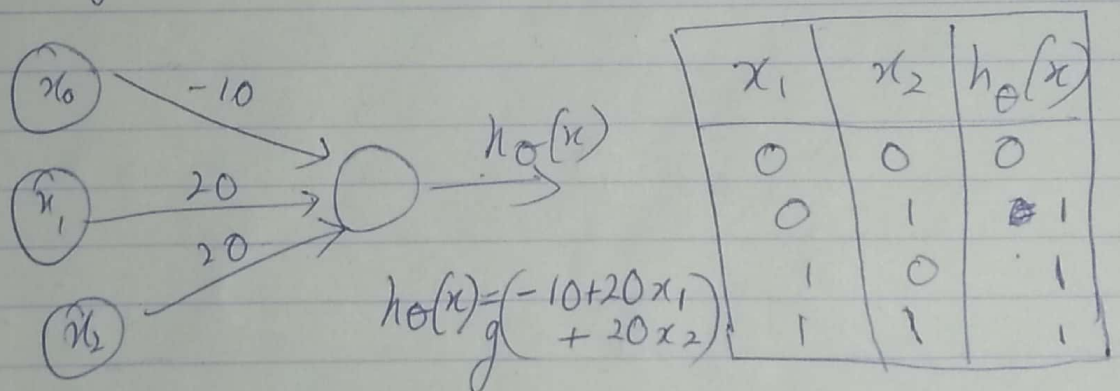 x₀
-10
x₁
20
x₂
20
h_θ(x)
h_θ(x)=g(-10+20x₁
+ 20x₂)
x₁ x₂ h_θ(x)
0 0 0
0 1 1
1 0 1
1 1 1